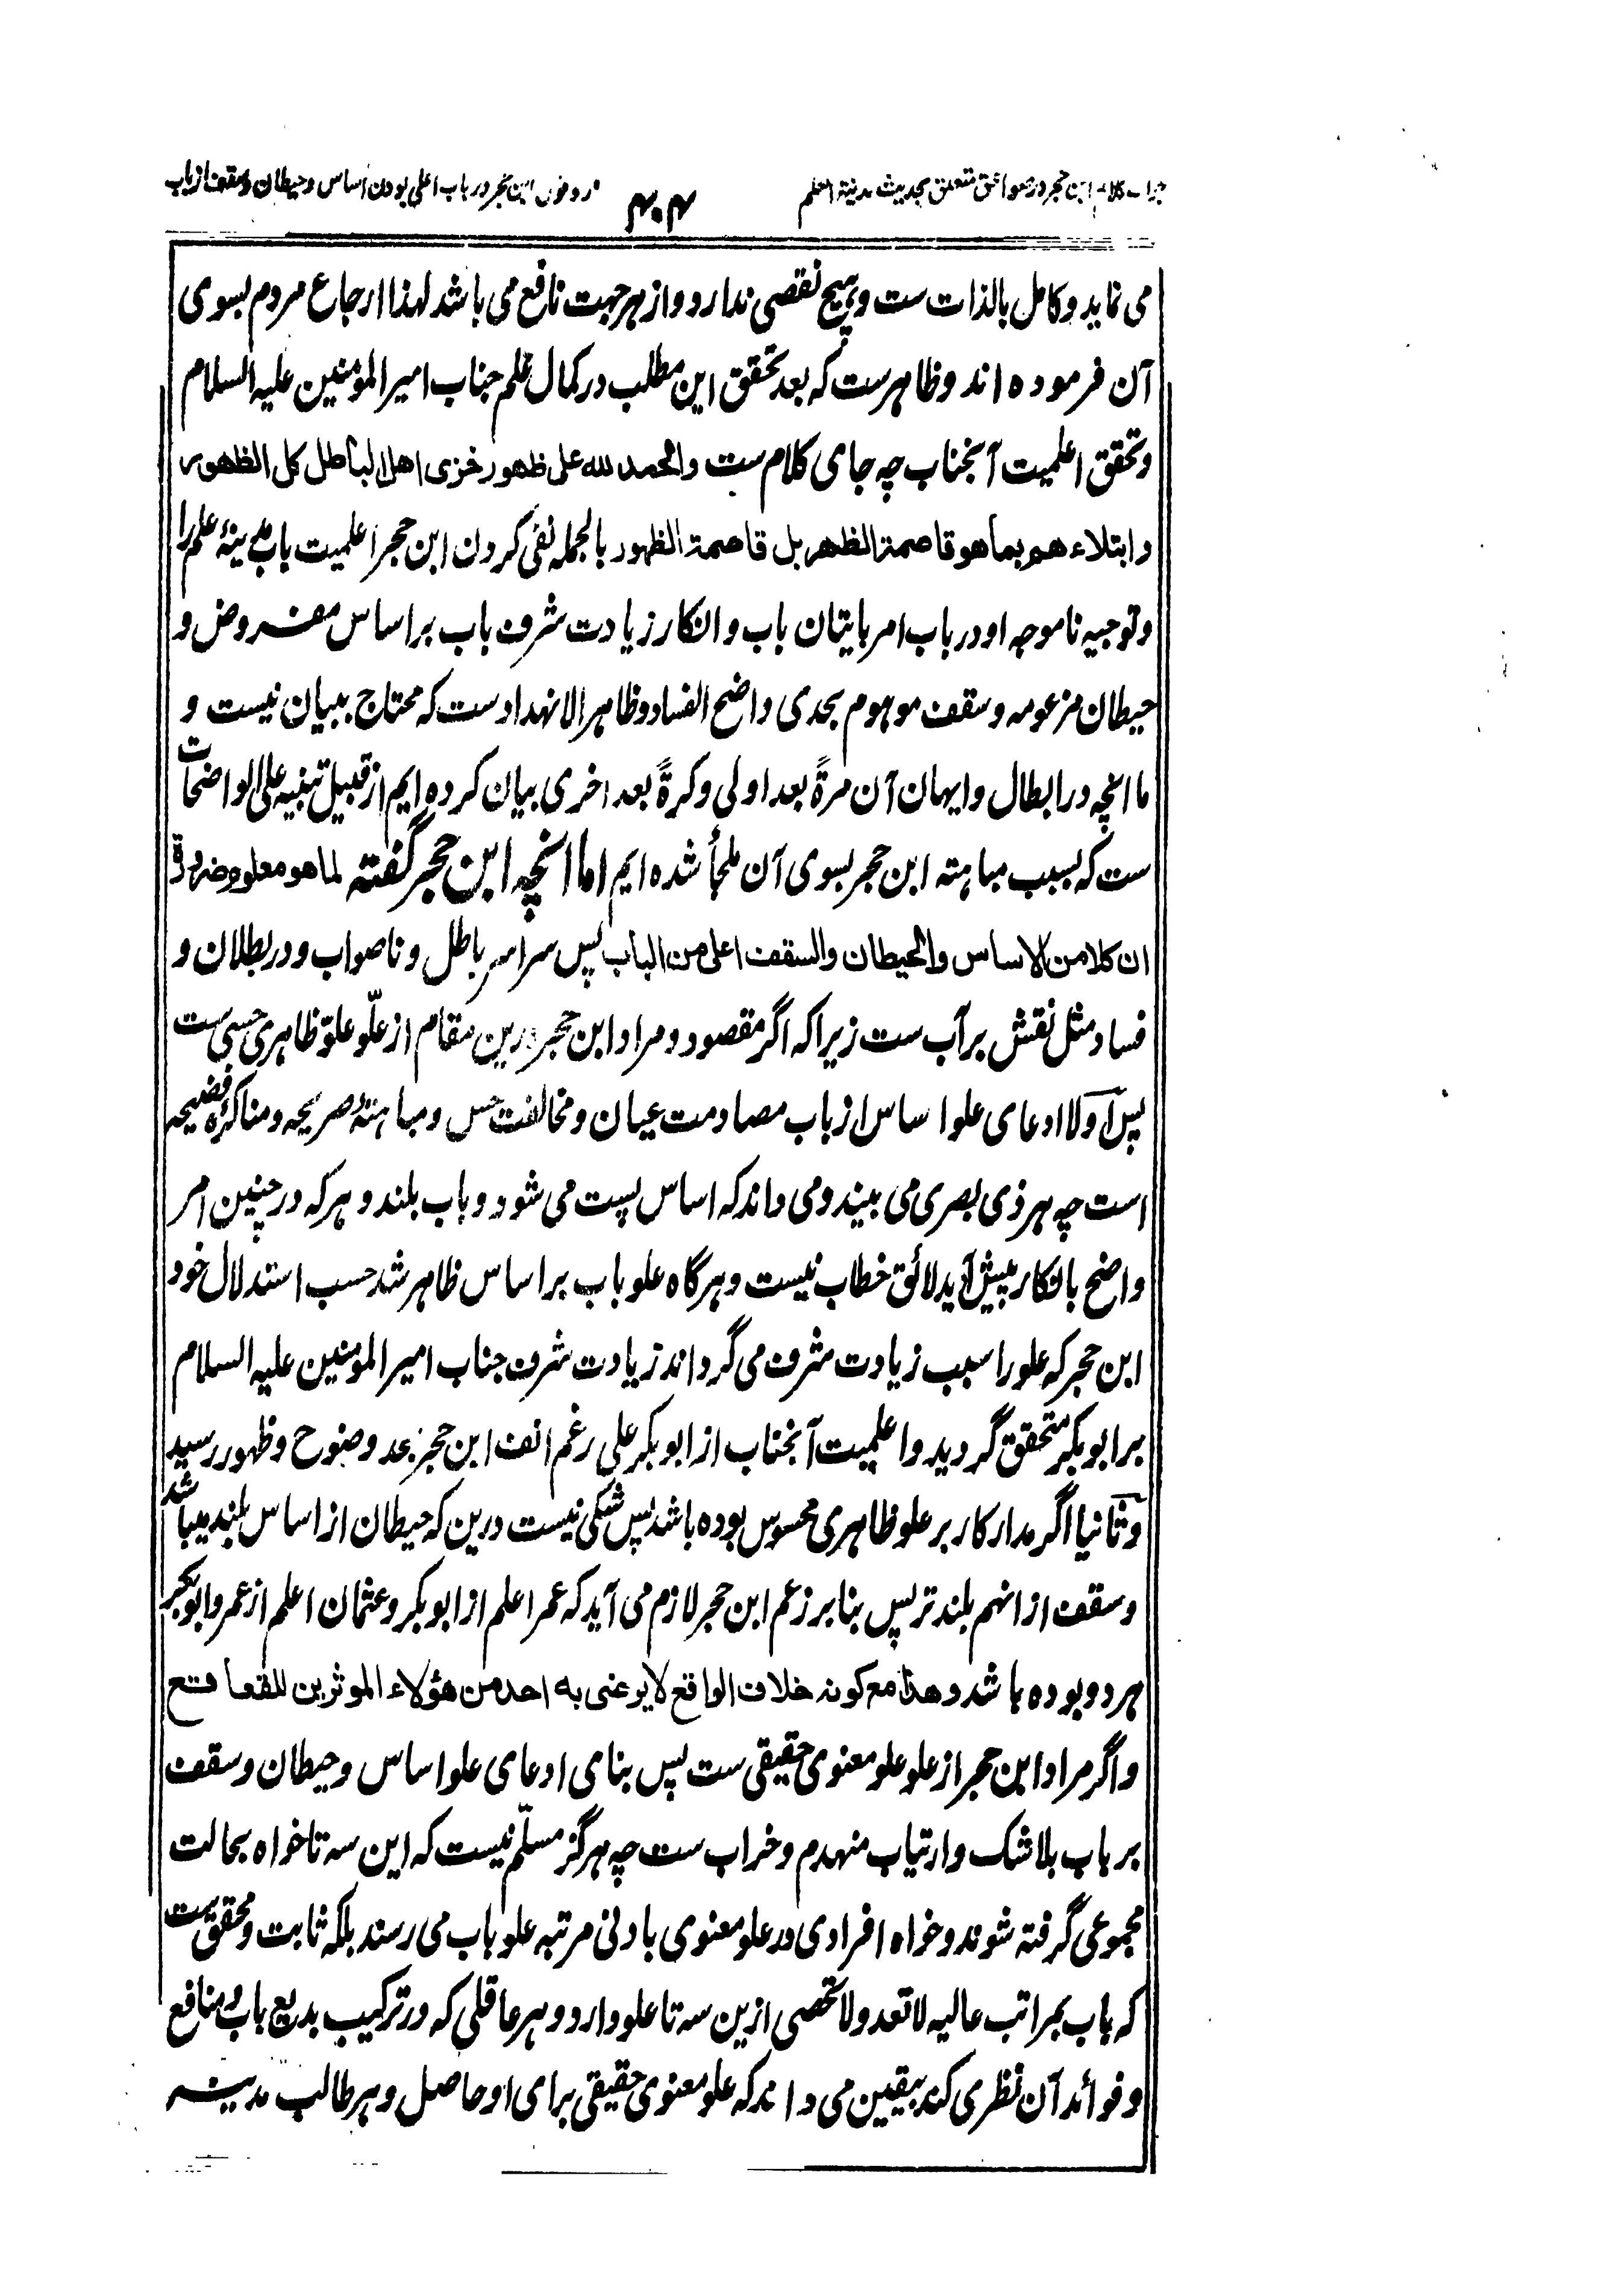 جواب کلام ابن حجر در صواعق متعلق بحدیث مدینة العلم
۴۰۴
رد قول ابن حجر در باب اعلی بودن اساس و حیطان و سقف از باب
می نماید و کامل بالذات ست و هیچ نقصی ندارد و از هر جهت نافع می باشد لهذا ارجاع مردم بسوی
آن فرموده اند و ظاهرست که بعد تحقق این مطلب در کمال علم جناب امیر المؤمنین علیه السلام
و تحقق اعلمیت آنجناب چه جای کلام ست والحمد لله علی ظهور خزی اهل الباطل کل الظهور
وابتلاءهم بما هو قاصمة الظهر بل قاصمة الظهور بالجمله نفی کردن ابن حجر اعلمیت باب مدینۀ علم را
و توجیه ناموجه او در باب امر باتیان باب و انکار زیادت شرف باب بر اساس مفروض و
حیطان مزعومه و سقف موهوم بحدی واضح الفساد و ظاهر الانهدادست که محتاج ببیان نیست و
ما انچه در ابطال و ایهان آن مرةً بعد اولی و کرةً بعد اخری بیان کرده ایم از قبیل تنبیه علی الواضحات
ست که بسبب مباهته ابن حجر بسوی آن ملجأ شده ایم اما انچه ابن حجر گفته لما هو معلوم ضرورة
ان کلا من الاساس والحیطان والسقف اعلی من الباب پس سراسر باطل و ناصواب و در بطلان و
فساد مثل نقش بر آب ست زیرا که اگر مقصود و مراد ابن حجر درین مقام از علوّ علوّ ظاهری حسی ست
پس اولا ادعای علو اساس از باب مصادمت عیان و مخالفت حس و مباهتۀ صریحه و مناکرۀ فضیحه
است چه هر ذی بصری می بیند و می داند که اساس پست می شود و باب بلند و هر که در چنین امر
واضح بانکار پیش آید لائق خطاب نیست و هرگاه علو باب بر اساس ظاهر شد حسب استدلال خود
ابن حجر که علو را سبب زیادت شرف می گرداند زیادت شرف جناب امیر المؤمنین علیه السلام
بر ابوبکر متحقق گردید و اعلمیت آنجناب از ابوبکر علی رغم انف ابن حجر بحد وضوح و ظهور رسید
و ثانیا اگر مدار کار بر علو ظاهری محسوس بوده باشد پس شکی نیست درین که حیطان از اساس بلند میباشد
و سقف از انهم بلندتر پس بنابر زعم ابن حجر لازم می آید که عمر اعلم از ابوبکر و عثمان اعلم از عمر و ابوبکر
هر دو بوده باشد و هذا مع کونه خلاف الواقع لا یرضی به احد من هؤلاء الموثرین للقعاقع
و اگر مراد ابن حجر از علو علو معنوی حقیقی ست پس بنای ادعای علو اساس و حیطان و سقف
بر باب بلاشک و ارتیاب منهدم و خراب ست چه هرگز مسلّم نیست که این سه تا خواه بحالت
مجموعی گرفته شوند و خواه افرادی در علو معنوی بادنی مرتبه علو باب می رسند بلکه ثابت و محقق ست
که باب بمراتب عالیه لا تعد و لا تحصی ازین سه تا علو دارد و هر عاقلی که در ترکیب بدیع باب و منافع
و فوائد آن نظری کند بیقین می داند که علو معنوی حقیقی برای او حاصل و هر طالب مدینه